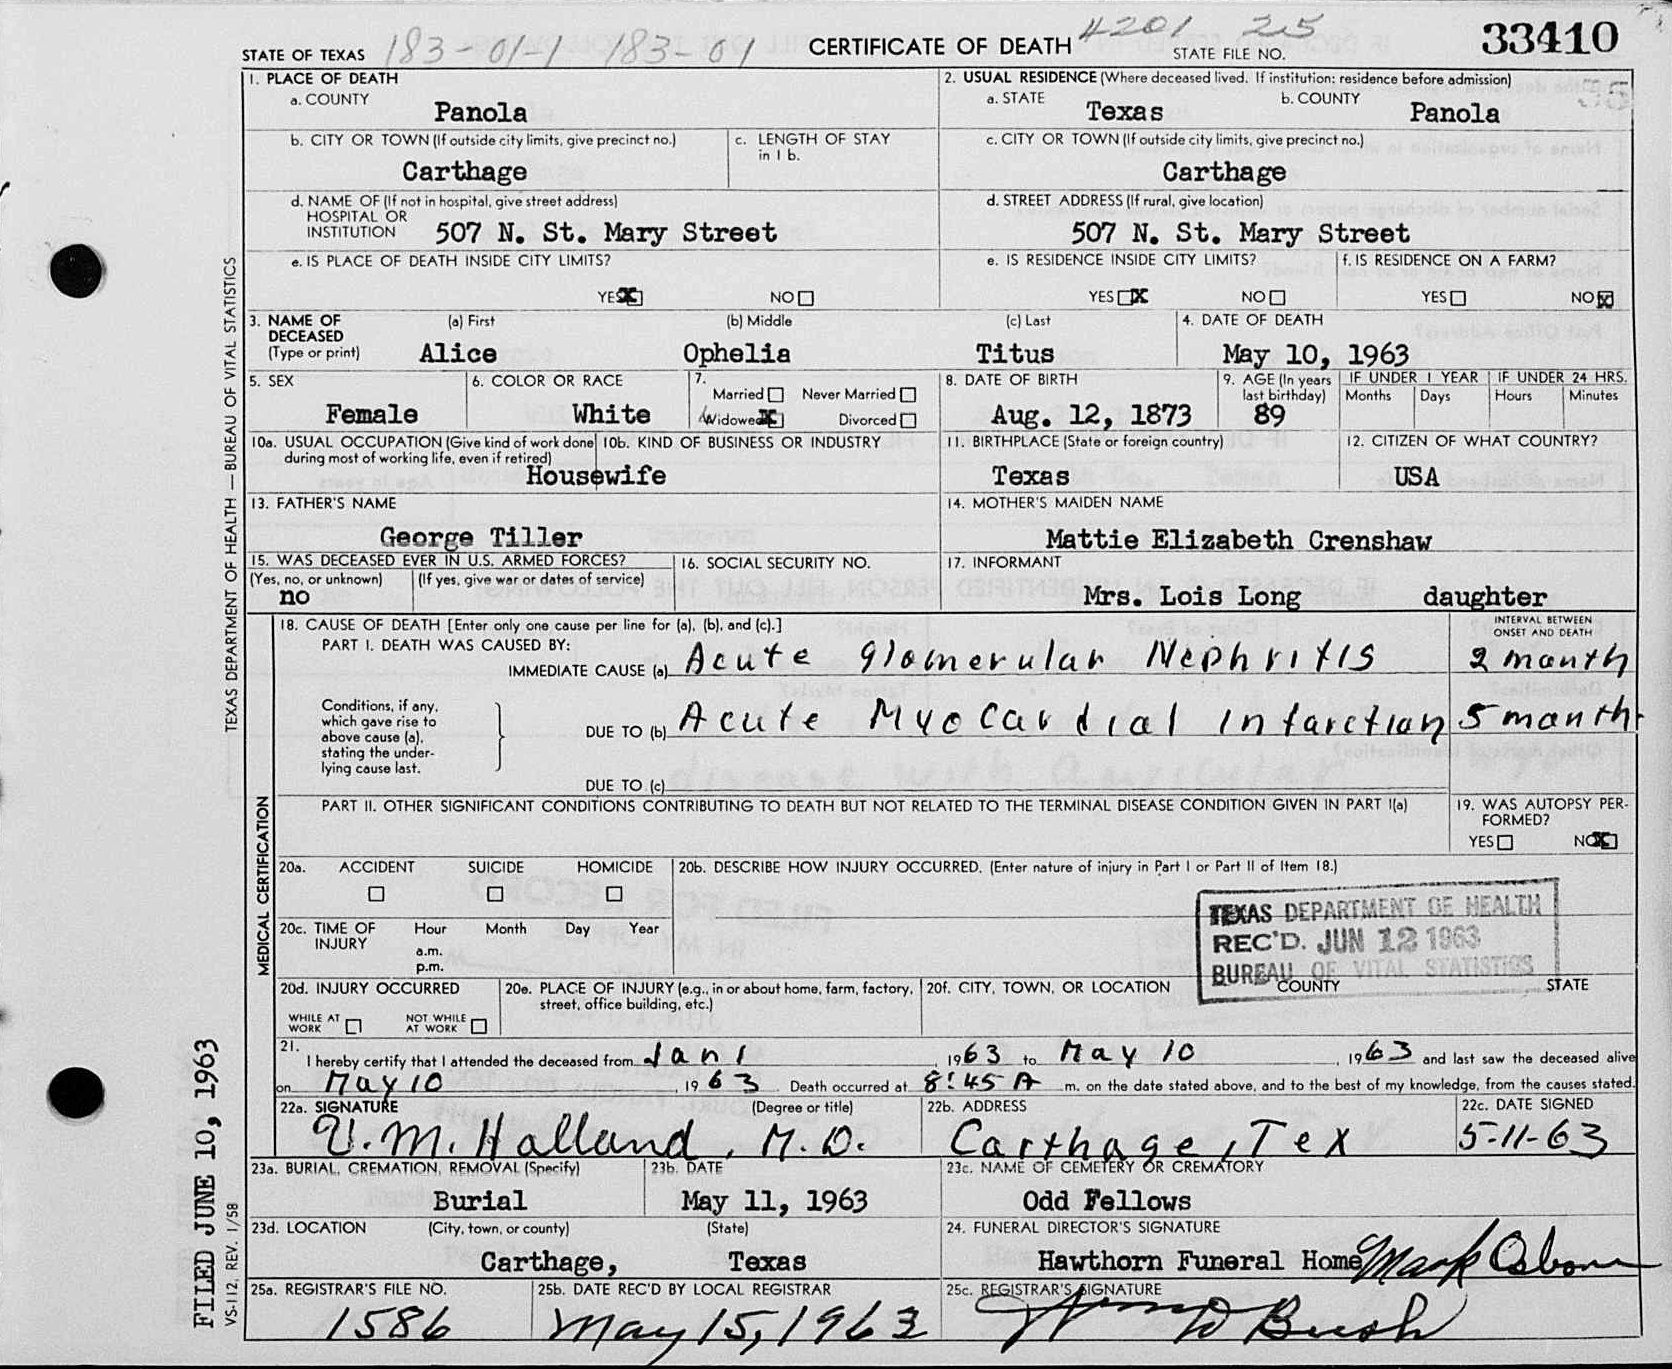 4201 25
33410
STATE OF TEXAS 183-01-1 183-01 CERTIFICATE OF DEATH STATE FILE NO.
1. PLACE OF DEATH
a. COUNTY
Panola
2. USUAL RESIDENCE (Where deceased lived. If institution: residence before admission)
a. STATE b. COUNTY
Texas Panola
b. CITY OR TOWN (If outside city limits, give precinct no.)
Carthage
c. LENGTH OF STAY
in 1 b.
c. CITY OR TOWN (If outside city limits, give precinct no.)
Carthage
d. NAME OF (If not in hospital, give street address)
HOSPITAL OR
INSTITUTION 507 N. St. Mary Street
d. STREET ADDRESS (If rural, give location)
507 N. St. Mary Street
e. IS PLACE OF DEATH INSIDE CITY LIMITS?
YES X NO
e. IS RESIDENCE INSIDE CITY LIMITS?
YES X NO
f. IS RESIDENCE ON A FARM?
YES NO X
3. NAME OF
DECEASED
(Type or print)
(a) First (b) Middle (c) Last
Alice Ophelia Titus
4. DATE OF DEATH
May 10, 1963
5. SEX
Female
6. COLOR OR RACE
White
7.
Married Never Married
Widowed X Divorced
8. DATE OF BIRTH
Aug. 12, 1873
9. AGE (In years
last birthday)
89
IF UNDER 1 YEAR
Months Days
IF UNDER 24 HRS.
Hours Minutes
10a. USUAL OCCUPATION (Give kind of work done
during most of working life, even if retired)
10b. KIND OF BUSINESS OR INDUSTRY
Housewife
11. BIRTHPLACE (State or foreign country)
Texas
12. CITIZEN OF WHAT COUNTRY?
USA
13. FATHER'S NAME
George Tiller
14. MOTHER'S MAIDEN NAME
Mattie Elizabeth Crenshaw
15. WAS DECEASED EVER IN U.S. ARMED FORCES?
(Yes, no, or unknown) (If yes, give war or dates of service)
no
16. SOCIAL SECURITY NO.
17. INFORMANT
Mrs. Lois Long daughter
18. CAUSE OF DEATH [Enter only one cause per line for (a), (b), and (c).]
PART I. DEATH WAS CAUSED BY:
IMMEDIATE CAUSE (a) Acute Glomerular Nephritis
INTERVAL BETWEEN
ONSET AND DEATH
2 month
Conditions, if any,
which gave rise to
above cause (a),
stating the under-
lying cause last.
DUE TO (b) Acute Myocardial Infarction 5 month
DUE TO (c)
PART II. OTHER SIGNIFICANT CONDITIONS CONTRIBUTING TO DEATH BUT NOT RELATED TO THE TERMINAL DISEASE CONDITION GIVEN IN PART I(a)
19. WAS AUTOPSY PER-
FORMED?
YES NO X
20a. ACCIDENT SUICIDE HOMICIDE
20b. DESCRIBE HOW INJURY OCCURRED. (Enter nature of injury in Part I or Part II of Item 18.)
20c. TIME OF
INJURY
Hour Month Day Year
a.m.
p.m.
TEXAS DEPARTMENT OF HEALTH
REC'D. JUN 12 1963
BUREAU OF VITAL STATISTICS
20d. INJURY OCCURRED
WHILE AT
WORK
NOT WHILE
AT WORK
20e. PLACE OF INJURY (e.g., in or about home, farm, factory,
street, office building, etc.)
20f. CITY, TOWN, OR LOCATION COUNTY STATE
21.
I hereby certify that I attended the deceased from Jan 1, 1963 to May 10, 1963 and last saw the deceased alive
on May 10, 1963. Death occurred at 8:45 A m. on the date stated above, and to the best of my knowledge, from the causes stated.
22a. SIGNATURE (Degree or title)
V.M. Halland, M.D.
22b. ADDRESS
Carthage, Tex
22c. DATE SIGNED
5-11-63
23a. BURIAL, CREMATION, REMOVAL (Specify)
Burial
23b. DATE
May 11, 1963
23c. NAME OF CEMETERY OR CREMATORY
Odd Fellows
23d. LOCATION (City, town, or county) (State)
Carthage, Texas
24. FUNERAL DIRECTOR'S SIGNATURE
Hawthorn Funeral Home Mark Osborn
25a. REGISTRAR'S FILE NO.
1586
25b. DATE REC'D BY LOCAL REGISTRAR
May 15, 1963
25c. REGISTRAR'S SIGNATURE
Bush
TEXAS DEPARTMENT OF HEALTH — BUREAU OF VITAL STATISTICS
MEDICAL CERTIFICATION
FILED JUNE 10, 1963
VS-112, REV. 1/58